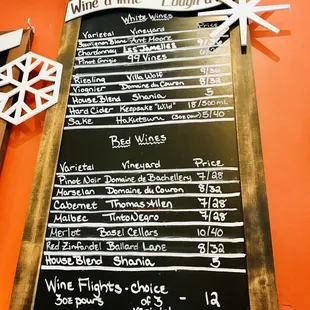 Wine a time
White Wines
Varietal Vineyard Price
Sauvignon Blanc Ant Moore
Chardonnay Les Jamelles
Pinot Grigio 99 Vines
Riesling Villa Wolf 9/36
Viognier Domaine du Couron 8/32
House Blend Shania 5
Hard Cider Keepsake "Wild" 18/500mL
Sake Hakutsuru (3oz pour) 5/40
Red Wines
Varietal Vineyard Price
Pinot Noir Domaine de Bachellery 7/28
Marselan Domaine du Couron 8/32
Cabernet Thomas Allen 7/28
Malbec Tinto Negro 7/28
Merlot Basel Cellars 10/40
Red Zinfandel Ballard Lane 8/32
House Blend Shania 5
Wine Flights - choice
3oz pours of 3 - 12